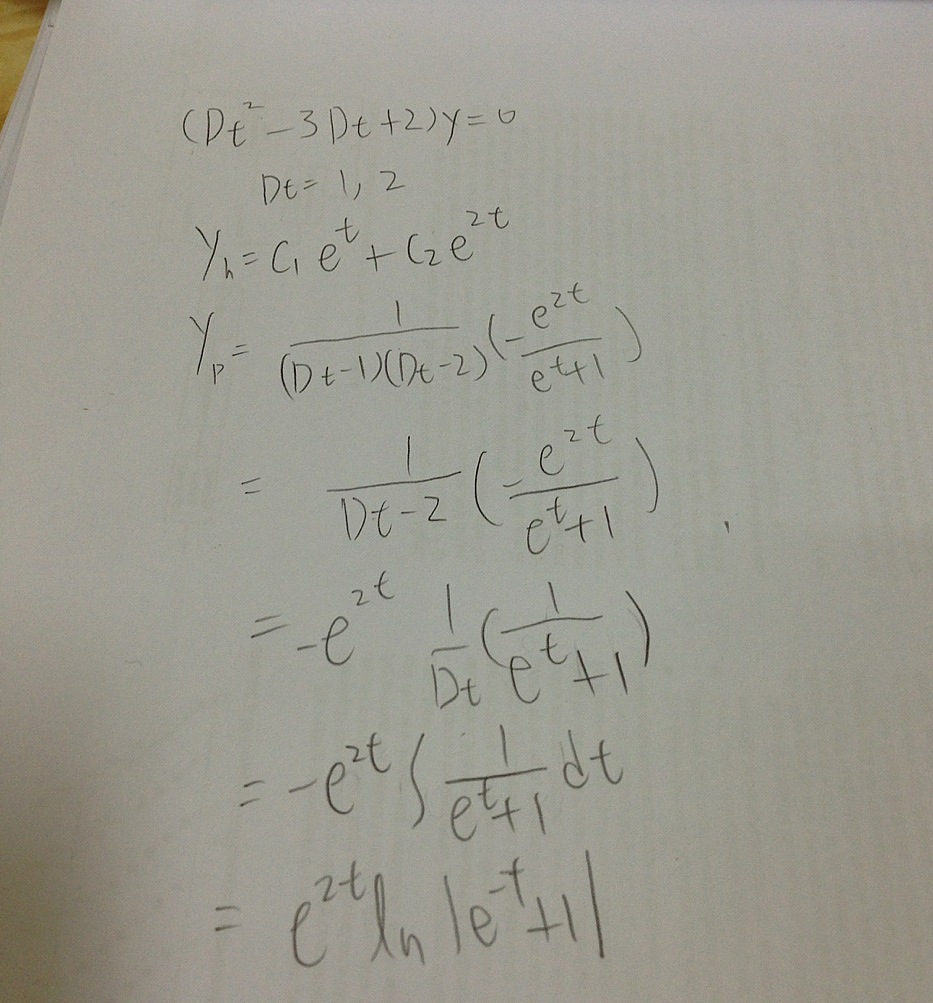 (Dt² - 3Dt + 2)y = 0
Dt = 1, 2
y_h = C₁e^t + C₂e^{2t}
y_p = \frac{1}{(Dt-1)(Dt-2)} (\frac{-e^{2t}}{e^t+1})
= \frac{1}{Dt-2} (\frac{-e^{2t}}{e^t+1})
= -e^{2t} \frac{1}{Dt} (\frac{1}{e^t+1})
= -e^{2t} ∫ \frac{1}{e^t+1} dt
= e^{2t} ln |e^{-t}+1|